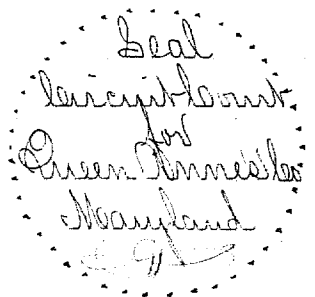 Seal
Circuit Court
for
Queen Anne's Co
Maryland